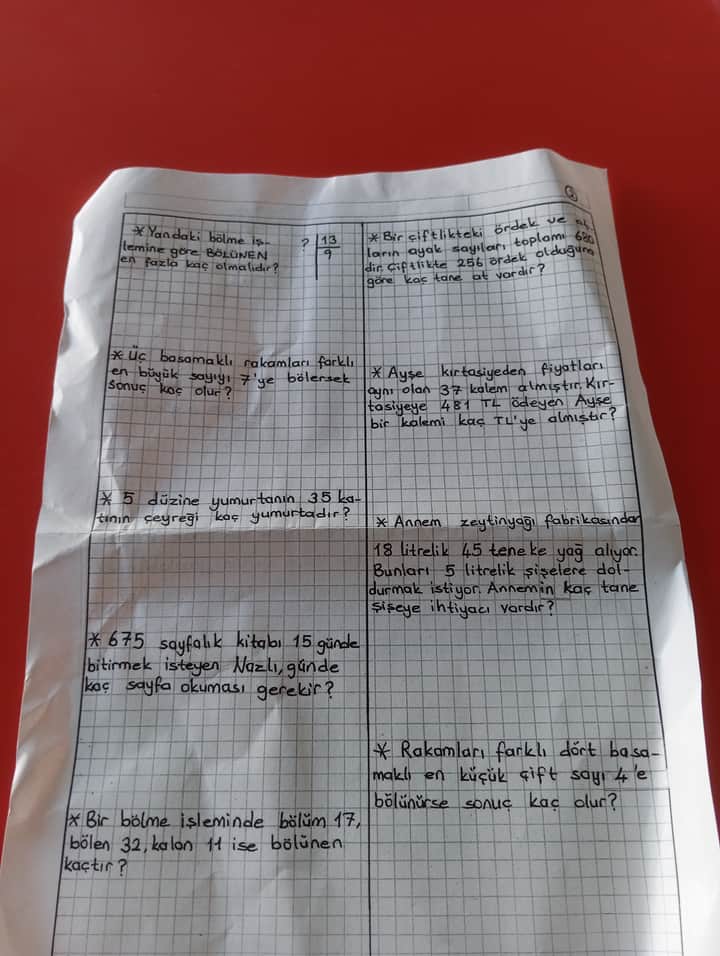 2
* Yandaki bölme iş-
lemine göre BÖLÜNEN
en fazla kaç olmalıdır?
? 13
9
* Üç basamaklı rakamları farklı
en büyük sayıyı 7'ye bölersek
sonuç kaç olur?
* 5 düzine yumurtanın 35 ka-
tının çeyreği kaç yumurtadır?
* 675 sayfalık kitabı 15 günde
bitirmek isteyen Nazlı, günde
kaç sayfa okuması gerekir?
* Bir bölme işleminde bölüm 17,
bölen 32, kalan 11 ise bölünen
kaçtır?
* Bir çiftlikteki ördek ve at-
ların ayak sayıları toplamı 680
dir. Çiftlikte 256 ördek olduğuna
göre kaç tane at vardır?
* Ayşe kırtasiyeden fiyatları
aynı olan 37 kalem almıştır. Kır-
tasiyeye 481 TL ödeyen Ayşe
bir kalemi kaç TL'ye almıştır?
* Annem zeytinyağı fabrikasından
18 litrelik 45 teneke yağ alıyor.
Bunları 5 litrelik şişelere dol-
durmak istiyor. Annemin kaç tane
şişeye ihtiyacı vardır?
* Rakamları farklı dört basa-
maklı en küçük çift sayı 4'e
bölünürse sonuç kaç olur?